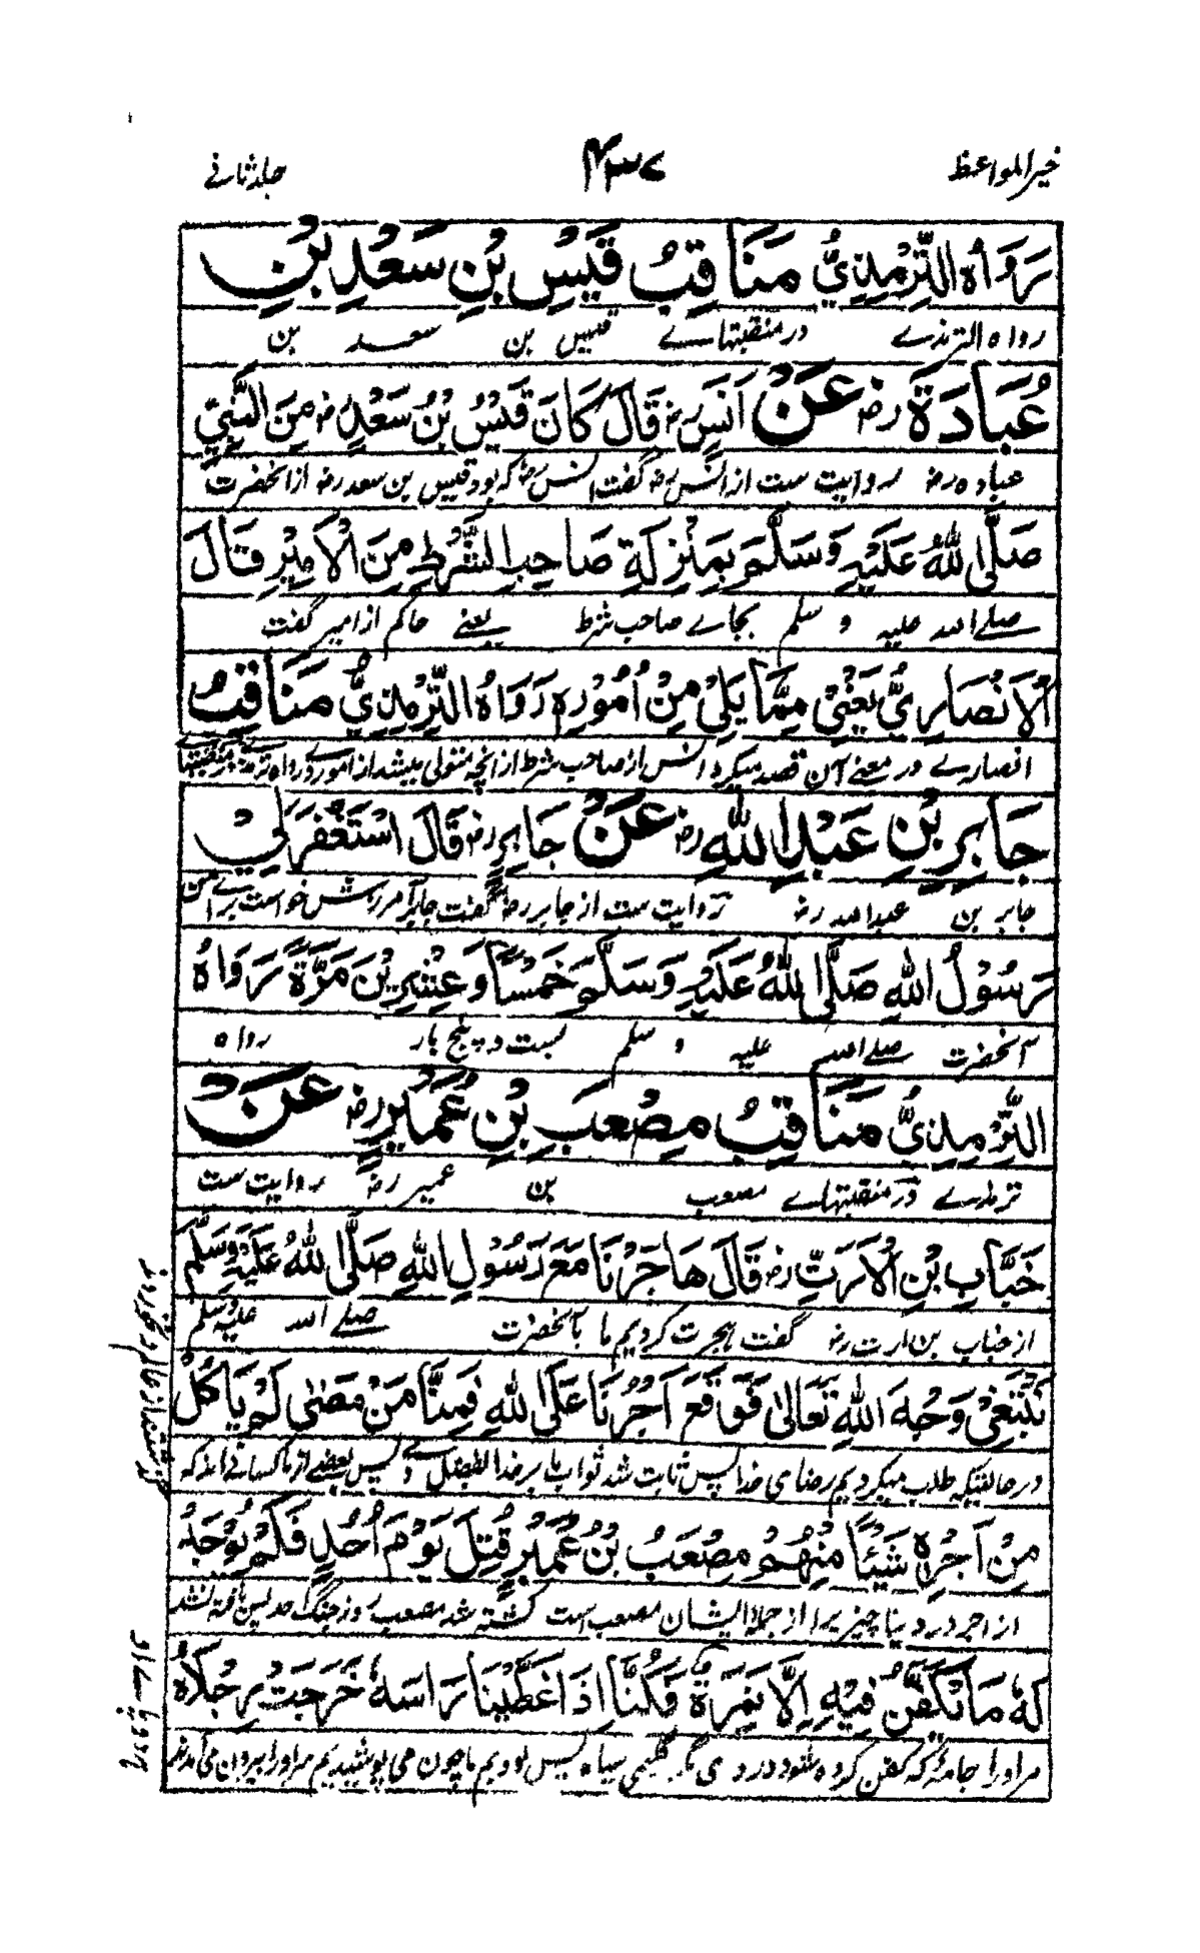 خیر المواعظ
۴۳۷
جلد ثانے
رَوَاهُ التِّرْمِذِيُّ مَنَاقِبُ قَيْسِ بْنِ سَعْدِ بْنِ
رواه الترمذے در منقبتهاے قیس بن سعد بن
عُبَادَةَ رض عَنْ اَنَسٍ رض قَالَ كَانَ قَيْسُ بْنُ سَعْدٍ رض مِنَ النَّبِيِّ
عباده رض روایت ست از انس رض گفت انس رض که بود قیس بن سعد رض از آنحضرت
صَلَّى اللهُ عَلَيْهِ وَسَلَّمَ بِمَنْزِلَةِ صَاحِبِ الشُّرَطِ مِنَ الْاَمِيْرِ قَالَ
صلے الله علیه و سلم بجاے صاحب شرط یعنے حاکم از امیر گفت
الْاَنْصَارِيُّ يَعْنِيْ مِمَّا يَلِيْ مِنْ اُمُوْرِهٖ رَوَاهُ التِّرْمِذِيُّ مَنَاقِبُ
انصارے در معنے آن قصد میکرد انس از صاحب شرط از آنچه متولی میشد از امورے رواه
جَابِرِ بْنِ عَبْدِ اللهِ رض عَنْ جَابِرٍ رض قَالَ اسْتَغْفَرَ لِيْ
جابر بن عبد الله رض روایت ست از جابر رض گفت جابر آمرزش خواست براے من
رَسُوْلُ اللهِ صَلَّى اللهُ عَلَيْهِ وَسَلَّمَ خَمْسًا وَعِشْرِيْنَ مَرَّةً رَوَاهُ
آنحضرت صلے الله علیه و سلم بست و پنج بار رواه
التِّرْمِذِيُّ مَنَاقِبُ مُصْعَبِ بْنِ عُمَيْرٍ رض عَنْ
ترمذے در منقبتهاے مصعب بن عمیر رض روایت ست
خَبَّابِ بْنِ الْاَرَتِّ رض قَالَ هَاجَرْنَا مَعَ رَسُوْلِ اللهِ صَلَّى اللهُ عَلَيْهِ وَسَلَّمَ
از خباب بن ارت رض گفت هجرت کردیم ما با آنحضرت صلے الله علیه وسلم
نَبْتَغِيْ وَجْهَ اللهِ تَعَالٰى فَوَقَعَ اَجْرُنَا عَلَى اللهِ فَمِنَّا مَنْ مَضٰى لَمْ يَاْكُلْ
در حالتیکه طلب میکردیم رضای خدا پس ثابت شد ثواب ما بر خدا بفضل وے پس بعضے از ما کسانے اند که
مِنْ اَجْرِهٖ شَيْئًا مِنْهُمْ مُصْعَبُ بْنُ عُمَيْرٍ قُتِلَ يَوْمَ اُحُدٍ فَلَمْ يُوْجَدْ
از اجر در دنیا چیزیرا از جمله ایشان مصعب ست کشته شد مصعب روز جنگ احد پس یافته نشد
لَهٗ مَا نُكَفِّنُ فِيْهِ اِلَّا نَمِرَةٌ فَكُنَّا اِذَا غَطَّيْنَا رَاسَهٗ خَرَجَتْ رِجْلَاهُ
مر او را جامۂ که کفن کرده شود در وی مگر گلیمی سیاه پس بودیم ما چون می پوشیدیم سر او را بیرون می آمدند